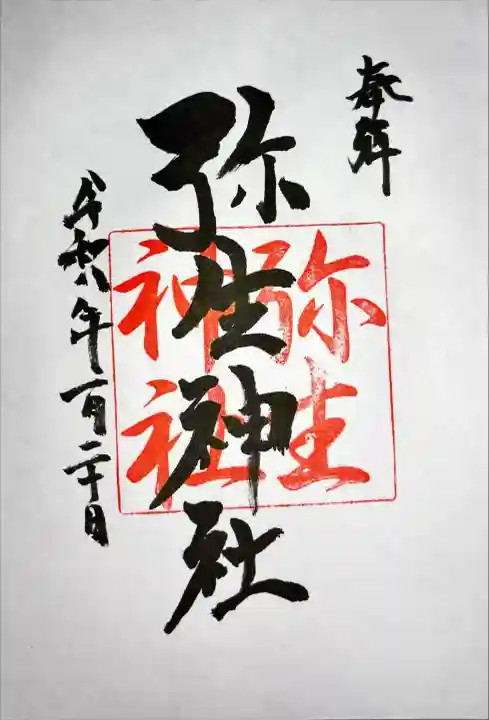 奉拝
弥生神社
弥生
神社
令和八年一月二十日